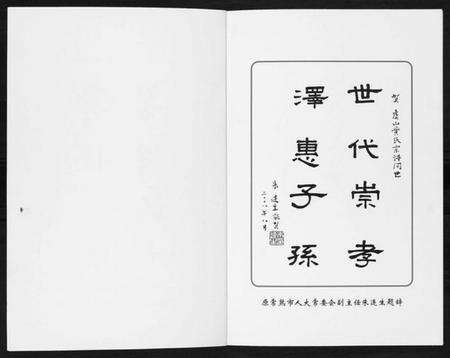 贺 虞山黄氏宗谱问世
世代崇孝
澤惠子孫
朱连生敬贺
二〇〇八年八月
原常熟市人大常委会副主任朱连生题辞